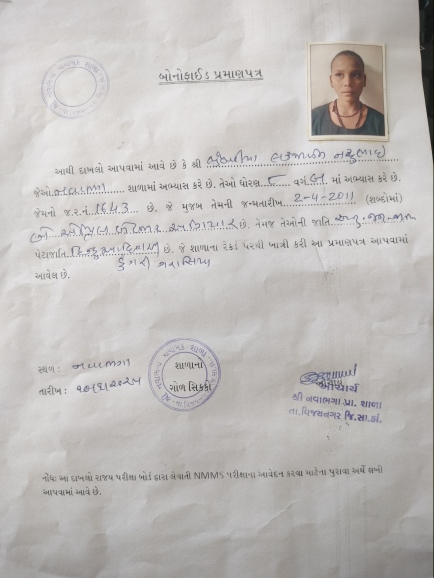 બોનોફાઈડ પ્રમાણપત્ર
આથી દાખલો આપવામાં આવે છે કે શ્રી
જેઓ નવાભગા શાળામાં અભ્યાસ કરે છે. તેઓ ધોરણ ૮ વર્ગ બ માં અભ્યાસ કરે છે.
જેમનો જ.ર.નં. 1643 છે. જે મુજબ તેમની જન્મતારીખ 2-4-2011 (શબ્દોમાં)
બી એપ્રિલ બે હજાર અગિયાર છે. તેમજ તેઓની જાતિ
પેટાજાતિ હિન્દુ આદિવાસી છે. જે શાળાના રેકર્ડ પરથી ખાત્રી કરી આ પ્રમાણપત્ર આપવામાં
ડુંગરી ગરાસિયા
આવેલ છે.
સ્થળ : નવાભગા
તારીખ :
શાળાનો
ગોળ સિક્કો
આચાર્ય
શ્રી નવાભગા પ્રા. શાળા
તા.વિજયનગર જિ.સા.કાં.
નોંધઃ આ દાખલો રાજય પરીક્ષા બોર્ડ દ્વારા લેવાતી NMMS પરીક્ષાના આવેદન કરવા માટેના પુરાવા અર્થે લખી
આપવામાં આવે છે.